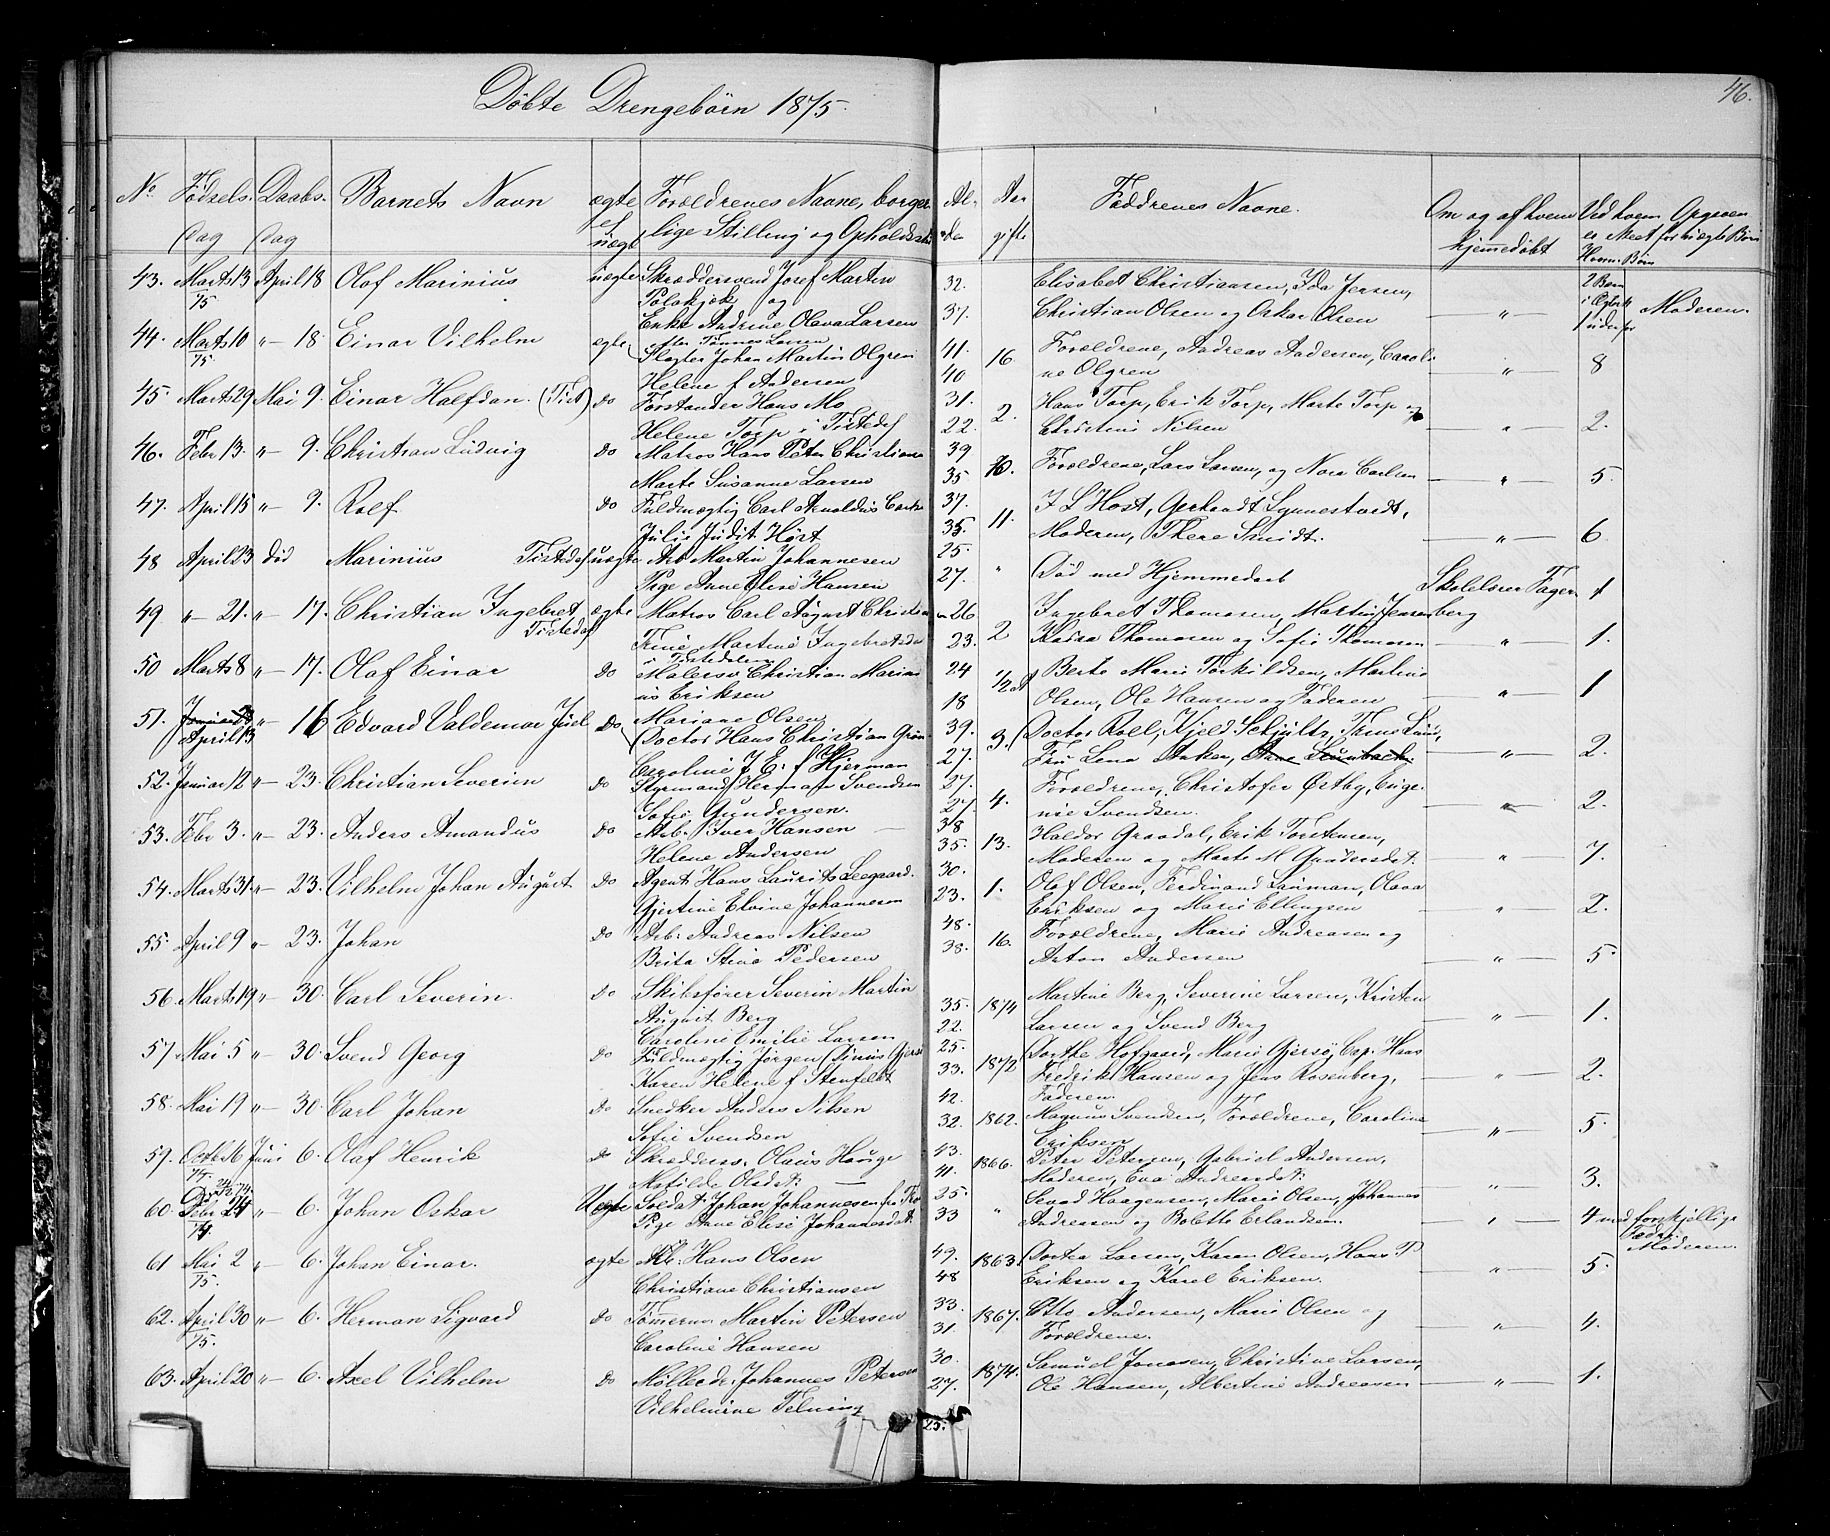 Døbte Drengebörn 1875.
46.
No Födsels- Daabs- Barnets Navn ægte Forældrenes Navne, borger- Al- Aar Faddrenes Navne. Om og af hvem Ved hvem Opgaven
dag dag el uægte lige Stilling og Opholdsst. der gifte hjemmedöbt er Meet for uægte Börn
Hvorm. Börn
43. Marts 13 April 18 Olaf Marinius uægte Skræddersvend Josef Martin 32. Elisabet Christiansen, Ida Jensen, 2 Börn
75 Polakjæk og 37. Christian Olsen og Oskar Olsen — " — i Ægtesk. Moderen.
Enke Andrine Olava Larsen 1 udenfor
44. Marts 10 " 18. Einar Vilhelm ægte efter Tönnes Larsen 41. 16. Forældrene, Andreas Andersen, Caroli-
75 Slagter Johan Martin Olgren 40 ne Olgren — " — 8
Helene f Andersen
45. Marts 29 Mai 9. Einar Halfdan. (Tist) do Forstander Hans Mo 31. 2. Hans Torp, Erik Torp, Marte Torp og
Helene Torp i Tistedal 22. Christine Nilsen — " — 2.
46. Febr 13. " 9. Christian Ludvig do Matros Hans Peter Christians 39 10. Forældrene, Lars Larsen, og Nora Carlsen
Marte Susanne Larsen 35 — " — 5.
47. April 15 " 9. Rolf do Fuldmægtig Carl Arnoldus 37. 11. J L Höst, Gerhardt Synnestvedt,
Julie Judit Höst 35. Moderen, There Smidt. — " — 6
48 April 23 död Marinius Tistedal uægte Arb Martin Johannesen 25. " Död med Hjemmedaab Skolelærer Fager- 1
Pige Anne Elise Hansen 27. berg
49 " 21. " 17. Christian Ingebret Tistedal ægte Matros Carl August Christen 26 2 Ingebret Thomasen, Martin Jensen
Trine Martine Ingebretsdr 23. Thomasen og Sofie Thomasen — " — 1.
i Tistedalen
50 Marts 8 " 17. Olaf Einar do Malersv Christian Marini- 24 1/2 A Berte Marie Torkildsen, Martine
us Eriksen 18 Olsen, Ole Hansen og Faderen — " — 1
Mariane Olsen
51. Januar April 13 " 16 Edvard Valdemar Juel do Doctor Hans Christian Grön 39. 3. Doctor Roll, Kjeld Schjultz, Trine Lund,
Caroline J. E. f Hjerman 27. Fru Lena Anker, — " — 2.
52. Januar 12 " 23. Christian Severin do Styrmand Herman Svendsen 27. 4. Forældrene, Christofer Ørtby, Euge-
Sofie Gundersen. 27. nie Svendsen. — " — 2.
53. Febr 3. " 23. Anders Amandus do Arb. Iver Hansen 38 13. Haldor Graadal, Erik Torstensen,
Helene Andersen 35. Moderen og Marte M Gundersdt. — " — 7.
54. Marts 31 " 23. Vilhelm Johan August do Agent Hans Laurits Leegaard. 30. 1. Olaf Olsen, Ferdinand Lauman, Olava
Gjertine Elvine Johannesen 23. Eriksen og Marie Ellingsen — " — 2.
55. April 9 " 23. Johan do Arb. Andreas Nilsen 48. 16. Forældrene, Marie Andreasen og
Brita Stine Pedersen 38. Anton Andersen — " — 5.
56. Marts 19 " 30. Carl Severin. do Skibsförer Severin Martin 35. 1874 Martine Berg, Severine Larsen, Kristen
August Berg 22. Larsen og Svend Berg — " — 1.
Caroline Emilie Larsen
57. Mai 5 " 30. Svend Georg do Fuldmægtig Jörgen Dinius Gjersö 25. 1872 Dorthe Hofgaard, Marie Gjersö, Cap. Hans
Karen Helene f Stenfeldt 33. Fredrik Hansen og Jens Rosenberg, — " — 2.
Faderen.
58. Mai 19 " 30. Carl Johan do Snedker Anders Nilsen 42. 1862. Magnus Svendsen, Forældrene, Caroline
Sofie Svendsen 32. Eriksen — " — 5.
59. Octbr 16 Juni 6. Olaf Henrik do Skrædders. Olaus Hauge 43. 1866. Peter Petersen, Gabriel Andersen,
Matilde Olsdt. 41. Moderen, Eva Andreasdt. — " — 3.
60. Febr 24 " 6. Johan Oskar Uægte Soldat Johan Johannesen fr 25. " Sevad Haagensen, Marie Olsen, Johannes
74 Pige Anne Elise Johannesdt 33 Andreasen og Bolette Erlandsen. — " — 4 med forskjellige
Fædre. Moderen.
61 Mai 2 " 6. Johan Einar. ægte Arb. Hans Olsen 49. 1863. Dortea Larsen, Karen Olsen, Hans P
75. Christiane Christiansen 48 Eriksen og Karel Eriksen. — " — 5.
62. April 30 " 6. Herman Sigvard do Tömerm Martin Petersen 33. 1867. Otto Andersen, Marie Olsen og
75. Caroline Hansen 31. Forældrene. — " — 4.
63. April 20 " 6. Axel Vilhelm do Möllearb. Johannes Petersen 30. 1874. Samuel Jonasen, Christine Larsen,
Vilhelmine Felning 27. Ole Hansen, Albertine Andreasen — " — 1.
25.